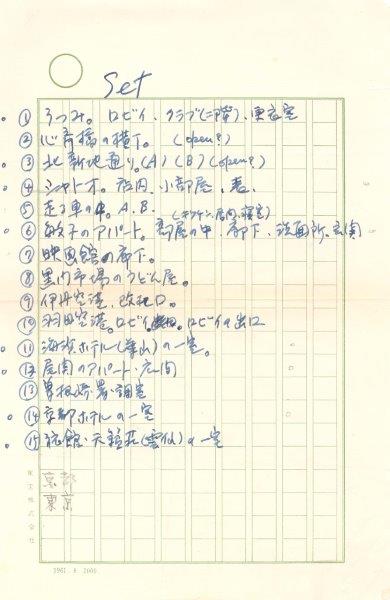 Set
① うつみ。ロビイ、クラブ(二階)、更衣室
② 心斎橋の横丁。(open?)
③ 北新地通り。(A)(B)(open?)
④ シャトオ。店内、小部屋、表、
⑤ 走る車の中。A.B.
(キッチン、居内、寝室)
⑥ 敏子のアパート。部屋の中、廊下、洗面所、玄関
⑦ 映画館の廊下。
⑧ 黒門市場のうどん屋。
⑨ 伊丹空港、改札口。
⑩ 羽田空港。ロビイ。ロビイの出口
⑪ 海浜ホテル(葉山)の一室。
⑫ のアパート・玄関
⑬ 署・調室
⑭ 京都ホテルの一室
⑮ 旅館・天 荘(雲仙)の一室
京都
東京
東宝株式会社
1961. 8 2000.